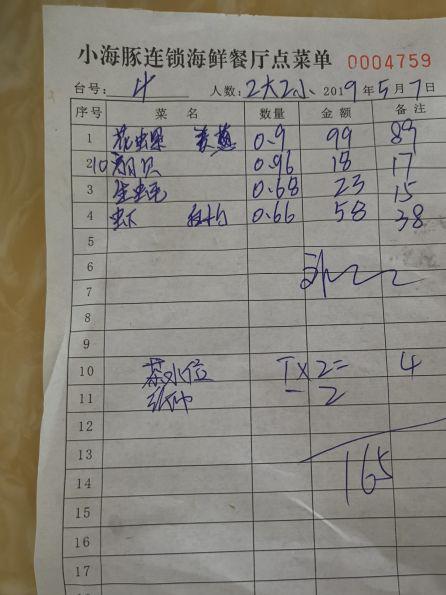 小海豚连锁海鲜餐厅点菜单 0004759
台号: 4 人数: 2大2小 2019年5月7日
序号 菜名 数量 金额 备注
1 花虫果 0.9 99 89
2 10 扇贝 0.96 18 17
3 生蚝 0.68 23 15
4 虾 0.66 58 38
5
6
7
8
9
10 茶水位 1×2= 4
11 纸巾 - 2
12
13
14 165
15
16
17